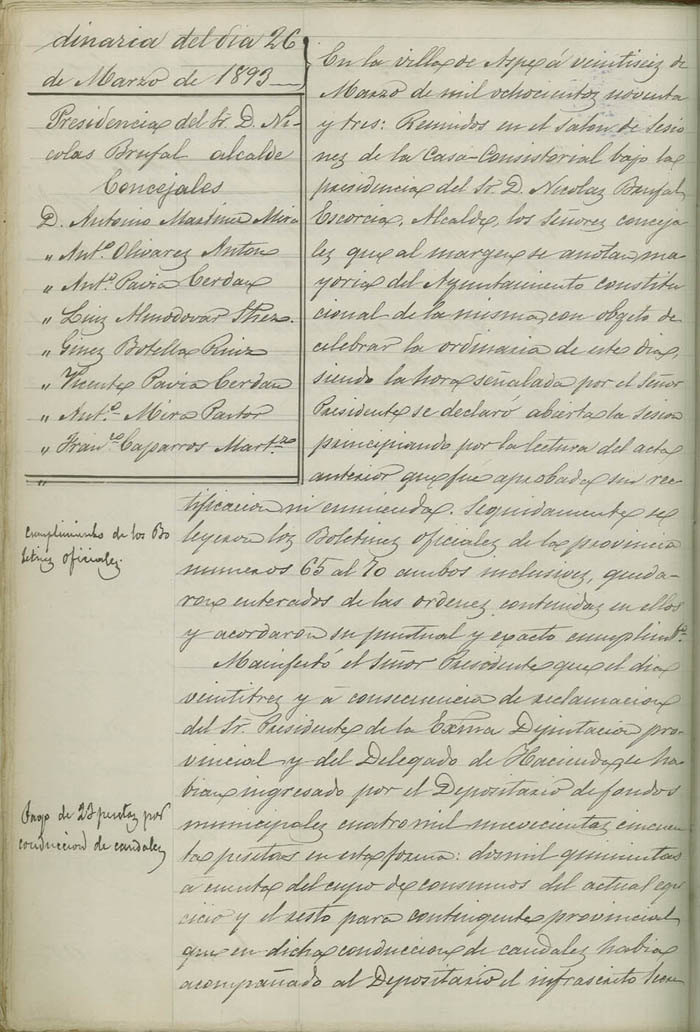 dinaria del dia 26
de Marzo de 1893
Presidencia del Sr. D. Ni-
colas Brufal alcalde
Concejales
D. Antonio Martinez Mira
" Antº. Olivarez Anton
" Antº. Pavia Cerdan
" Luiz Almodovar
" Ginez Botella Ruiz
" Vicente Pavia Cerdan
" Antº. Mira Pastor
" Franco. Caparros Martnz
"
En la villa de Aspe á veintiseiz de
Marzo de mil ochocientoz noventa
y tres: Reunidos en el salon de sesio
nez de la Casa-Consistorial bajo la
presidencia del Sr. D. Nicolaz Brufal
Escorcia, Alcalde, los señorez conceja
lez que al margen se anotan ma-
yoria del Ayuntamiento constitu
cional de la misma, con objeto de
celebrar la ordinaria de este dia,
siendo la hora señalada por el Señor
Presidente se declaró abierta la sesion
principiando por la lectura del acta
anterior que fué aprobada sin rec-
tificacion ni enmienda. Seguidamente se
leyeron loz Boletinez oficialez de la provincia
numeros 65 al 70 ambos inclusivez, queda-
ron enterados de las ordenez contenidaz en ellos
y acordaron su puntual y exacto cumplimto.
Manifestó el Señor Presidente que el dia
veintitrez y á consecuencia de reclamacion
del Sr. Presidente de la Exma Diputacion pro-
vincial y del Delegado de Hacienda, se ha-
bian ingresado por el Depositario de fondos
municipalez cuatro mil novecientaz cincuen
ta pesetas en esta forma: dos mil quinientas
á cuenta del cupo de consumos del actual eger
cicio y el resto para contingente provincial
que en dicha conduccion de caudalez habia
acompañado al Depositario el infrascrito Secre
Cumplimiento de los Bo
letinez oficialez.
Pago de 23 pesetaz por
conduccion de caudalez